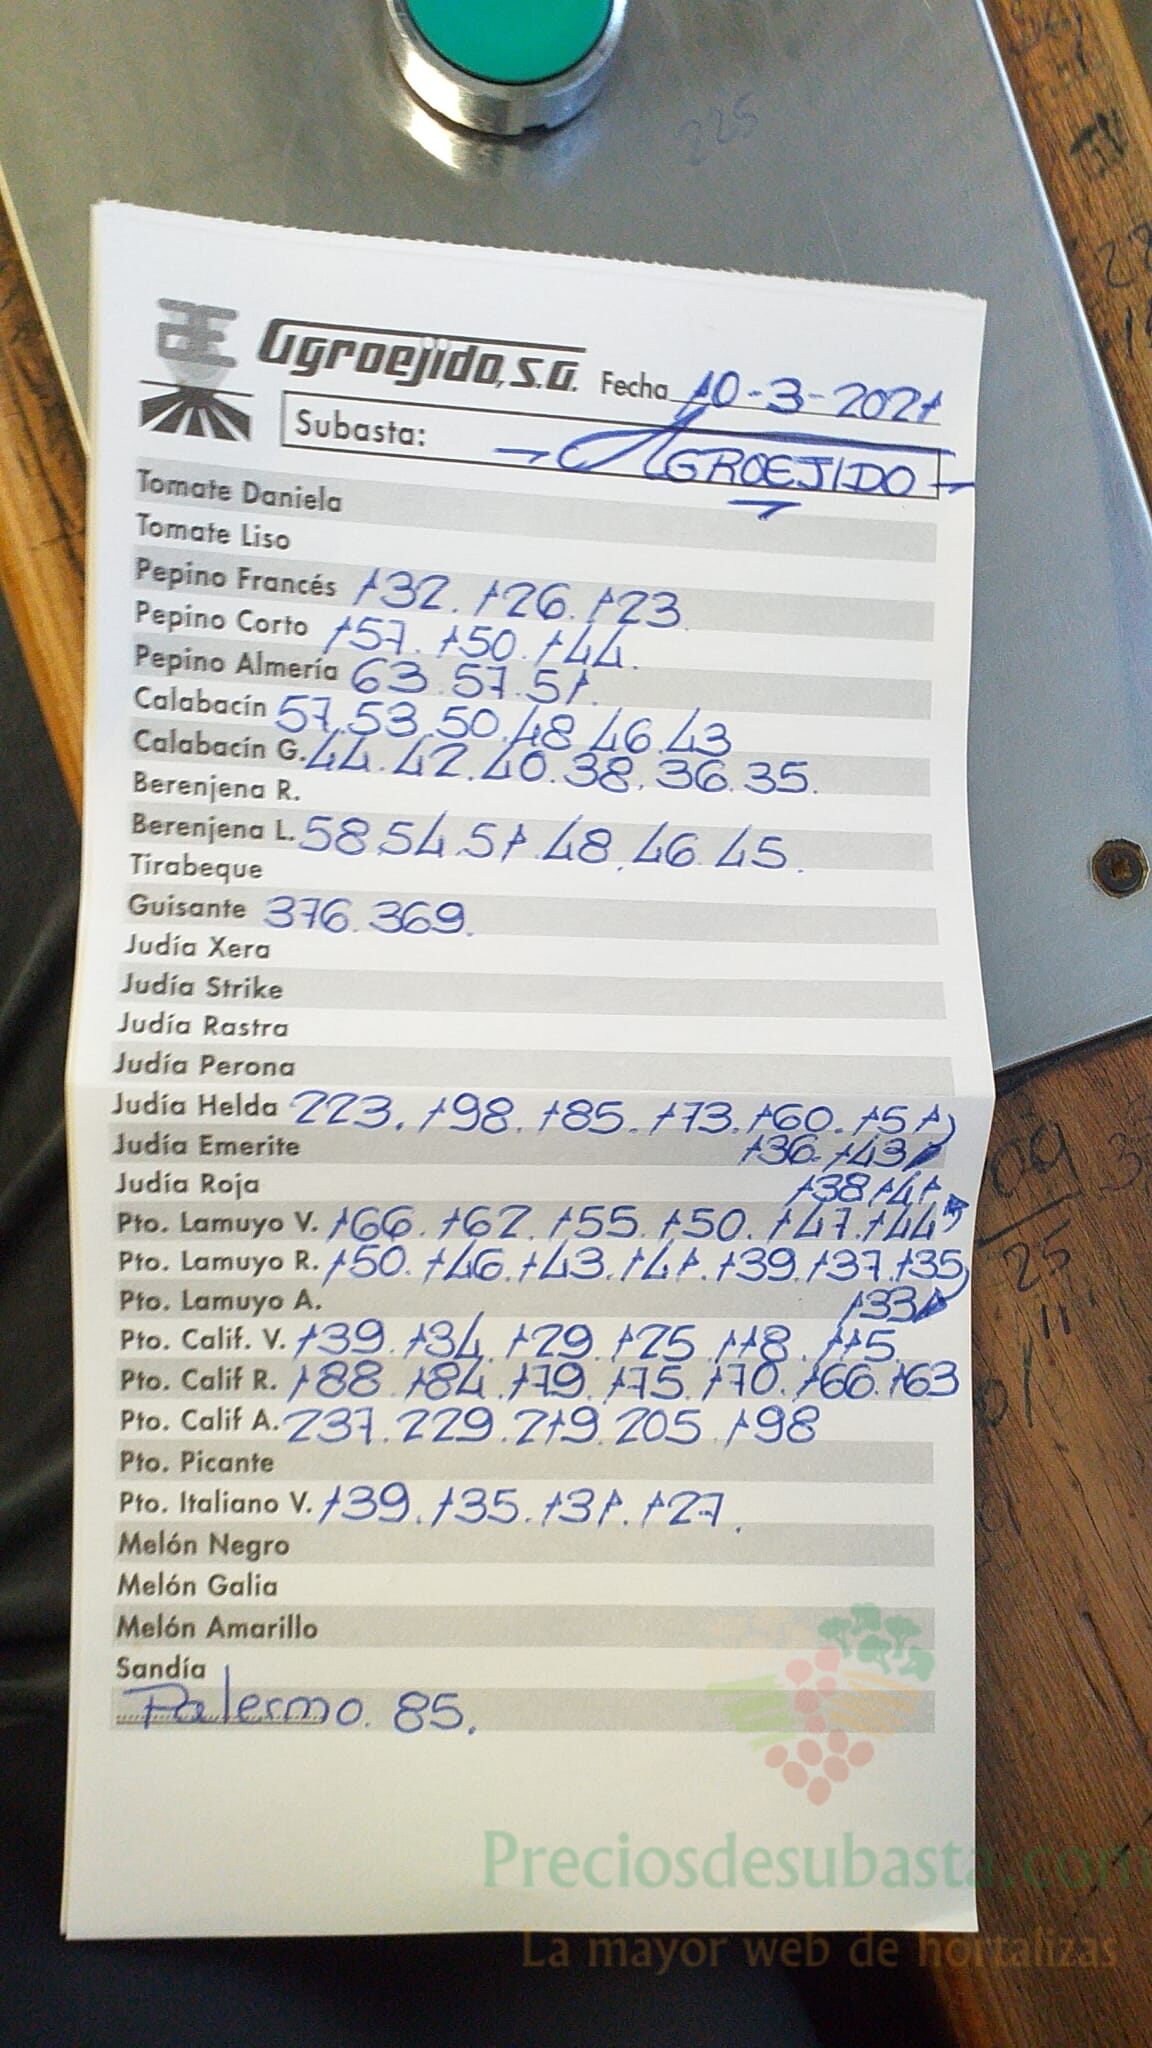 225
Agroejido, S.A. Fecha 10-3-2021
Subasta: AGROEJIDO
Tomate Daniela
Tomate Liso
Pepino Francés 132. 126. 123.
Pepino Corto 157. 150. 144.
Pepino Almería 63. 57. 51.
Calabacín 57. 53. 50. 48. 46. 43
Calabacín G. 44. 42. 40. 38. 36. 35.
Berenjena R.
Berenjena L. 58. 54. 51. 48. 46. 45.
Tirabeque
Guisante 376. 369.
Judía Xera
Judía Strike
Judía Rastra
Judía Perona
Judía Helda 223. 198. 185. 173. 160. 151
Judía Emerite 136. 143
Judía Roja 138 141
Pto. Lamuyo V. 166. 162. 155. 150. 147. 144
Pto. Lamuyo R. 150. 146. 143. 141. 139. 137. 135
Pto. Lamuyo A. 133
Pto. Calif. V. 139. 134. 129. 125. 118. 115.
Pto. Calif R. 188. 184. 179. 175. 170. 166. 163
Pto. Calif A. 237. 229. 219. 205. 198
Pto. Picante
Pto. Italiano V. 139. 135. 131. 127.
Melón Negro
Melón Galia
Melón Amarillo
Sandía
Palermo. 85.
Preciosdesubasta.com
La mayor web de hortalizas